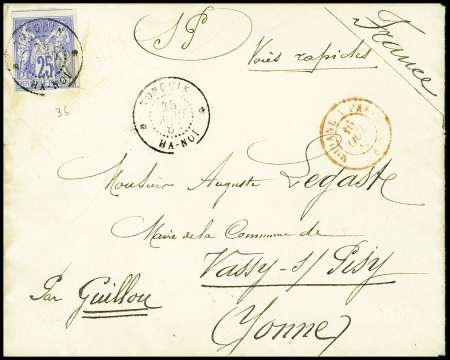 TONQUIN
HA-NOI
25
36
S P
Voies rapides
France
TONQUIN
25
HA-NOI
MODANE A PARIS
Monsieur Auguste Legaste
Maire de la Commune de
Vassy-s/ Pisy
Par Guillon
(Yonne)